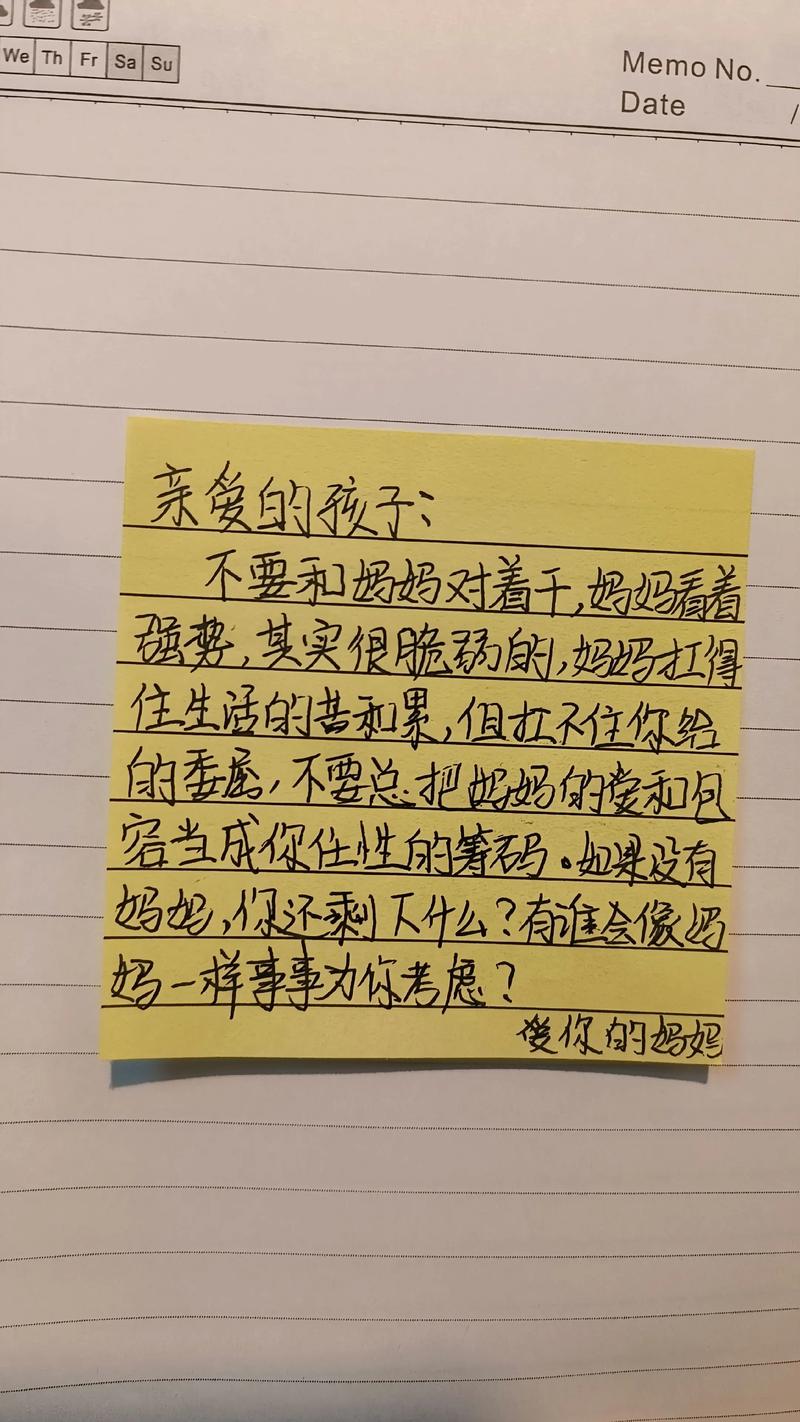 We Th Fr Sa Su
Memo No.
Date /
亲爱的孩子:
不要和妈妈对着干,妈妈看着
强势,其实很脆弱的,妈妈扛得
住生活的苦和累,但扛不住你给
的委屈,不要总把妈妈的爱和包
容当成你任性的筹码。如果没有
妈妈,你还剩下什么?有谁会像妈
妈一样事事为你考虑?
爱你的妈妈